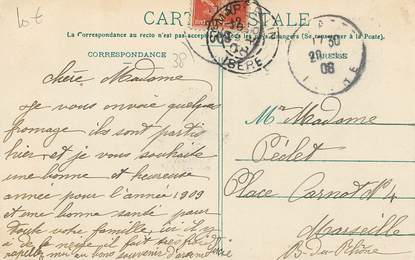 Lot
CARTE POSTALE
La Correspondance au recto n'est pas acceptée
(Se renseigner à la Poste).
CORRESPONDANCE
38
ISÈRE
08
30
08
ISÈRE
chère Madame
Je vous envoie quelques
fromage ils sont partis
hier et je vous souhaite
une bonne et heureuse
année pour l'année 1909
et une bonne santé pour
toute votre famille, ici il y
a de la neige il fait très froid
mon bon souvenir
Mr Madame
Péclet
Place Carnot N° 4
Marseille
B-du-Rhône